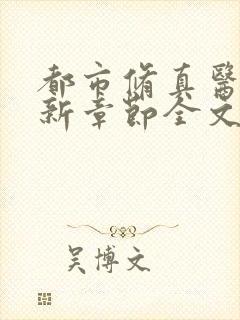 都市脩真醫
新章節全文
吴博文